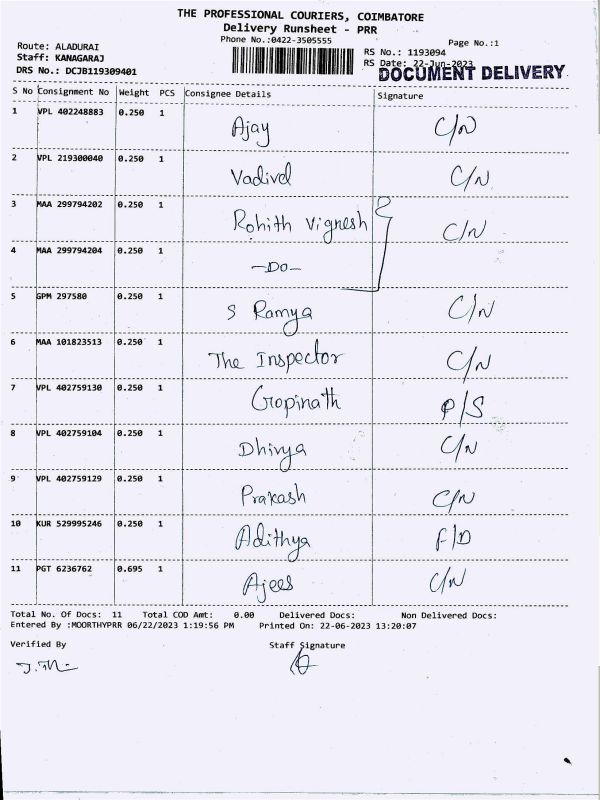 THE PROFESSIONAL COURIERS, COIMBATORE
Delivery Runsheet - PRR
Phone No.:0422-3505555
Page No.:1
Route: ALADURAI
Staff: KANAGARAJ
DRS No.: DCJB119309401
RS No.: 1193094
RS Date: 22-Jun-2023
DOCUMENT DELIVERY
S No Consignment No Weight PCS Consignee Details Signature
1 VPL 402248883 0.250 1 Ajay C/N
2 VPL 219300040 0.250 1 Vadivel C/N
3 MAA 299794202 0.250 1 Rohith Vignesh C/N
4 MAA 299794204 0.250 1 -Do-
5 GPM 297580 0.250 1 S Ramya C/N
6 MAA 101823513 0.250 1 The Inspector C/N
7 VPL 402759130 0.250 1 Gopinath P/S
8 VPL 402759104 0.250 1 Dhivya C/N
9 VPL 402759129 0.250 1 Prakash C/N
10 KUR 529995246 0.250 1 Adithya F/D
11 PGT 6236762 0.695 1 Ajees C/N
Total No. Of Docs: 11 Total COD Amt: 0.00 Delivered Docs: Non Delivered Docs:
Entered By :MOORTHYPRR 06/22/2023 1:19:56 PM Printed On: 22-06-2023 13:20:07
Verified By Staff Signature